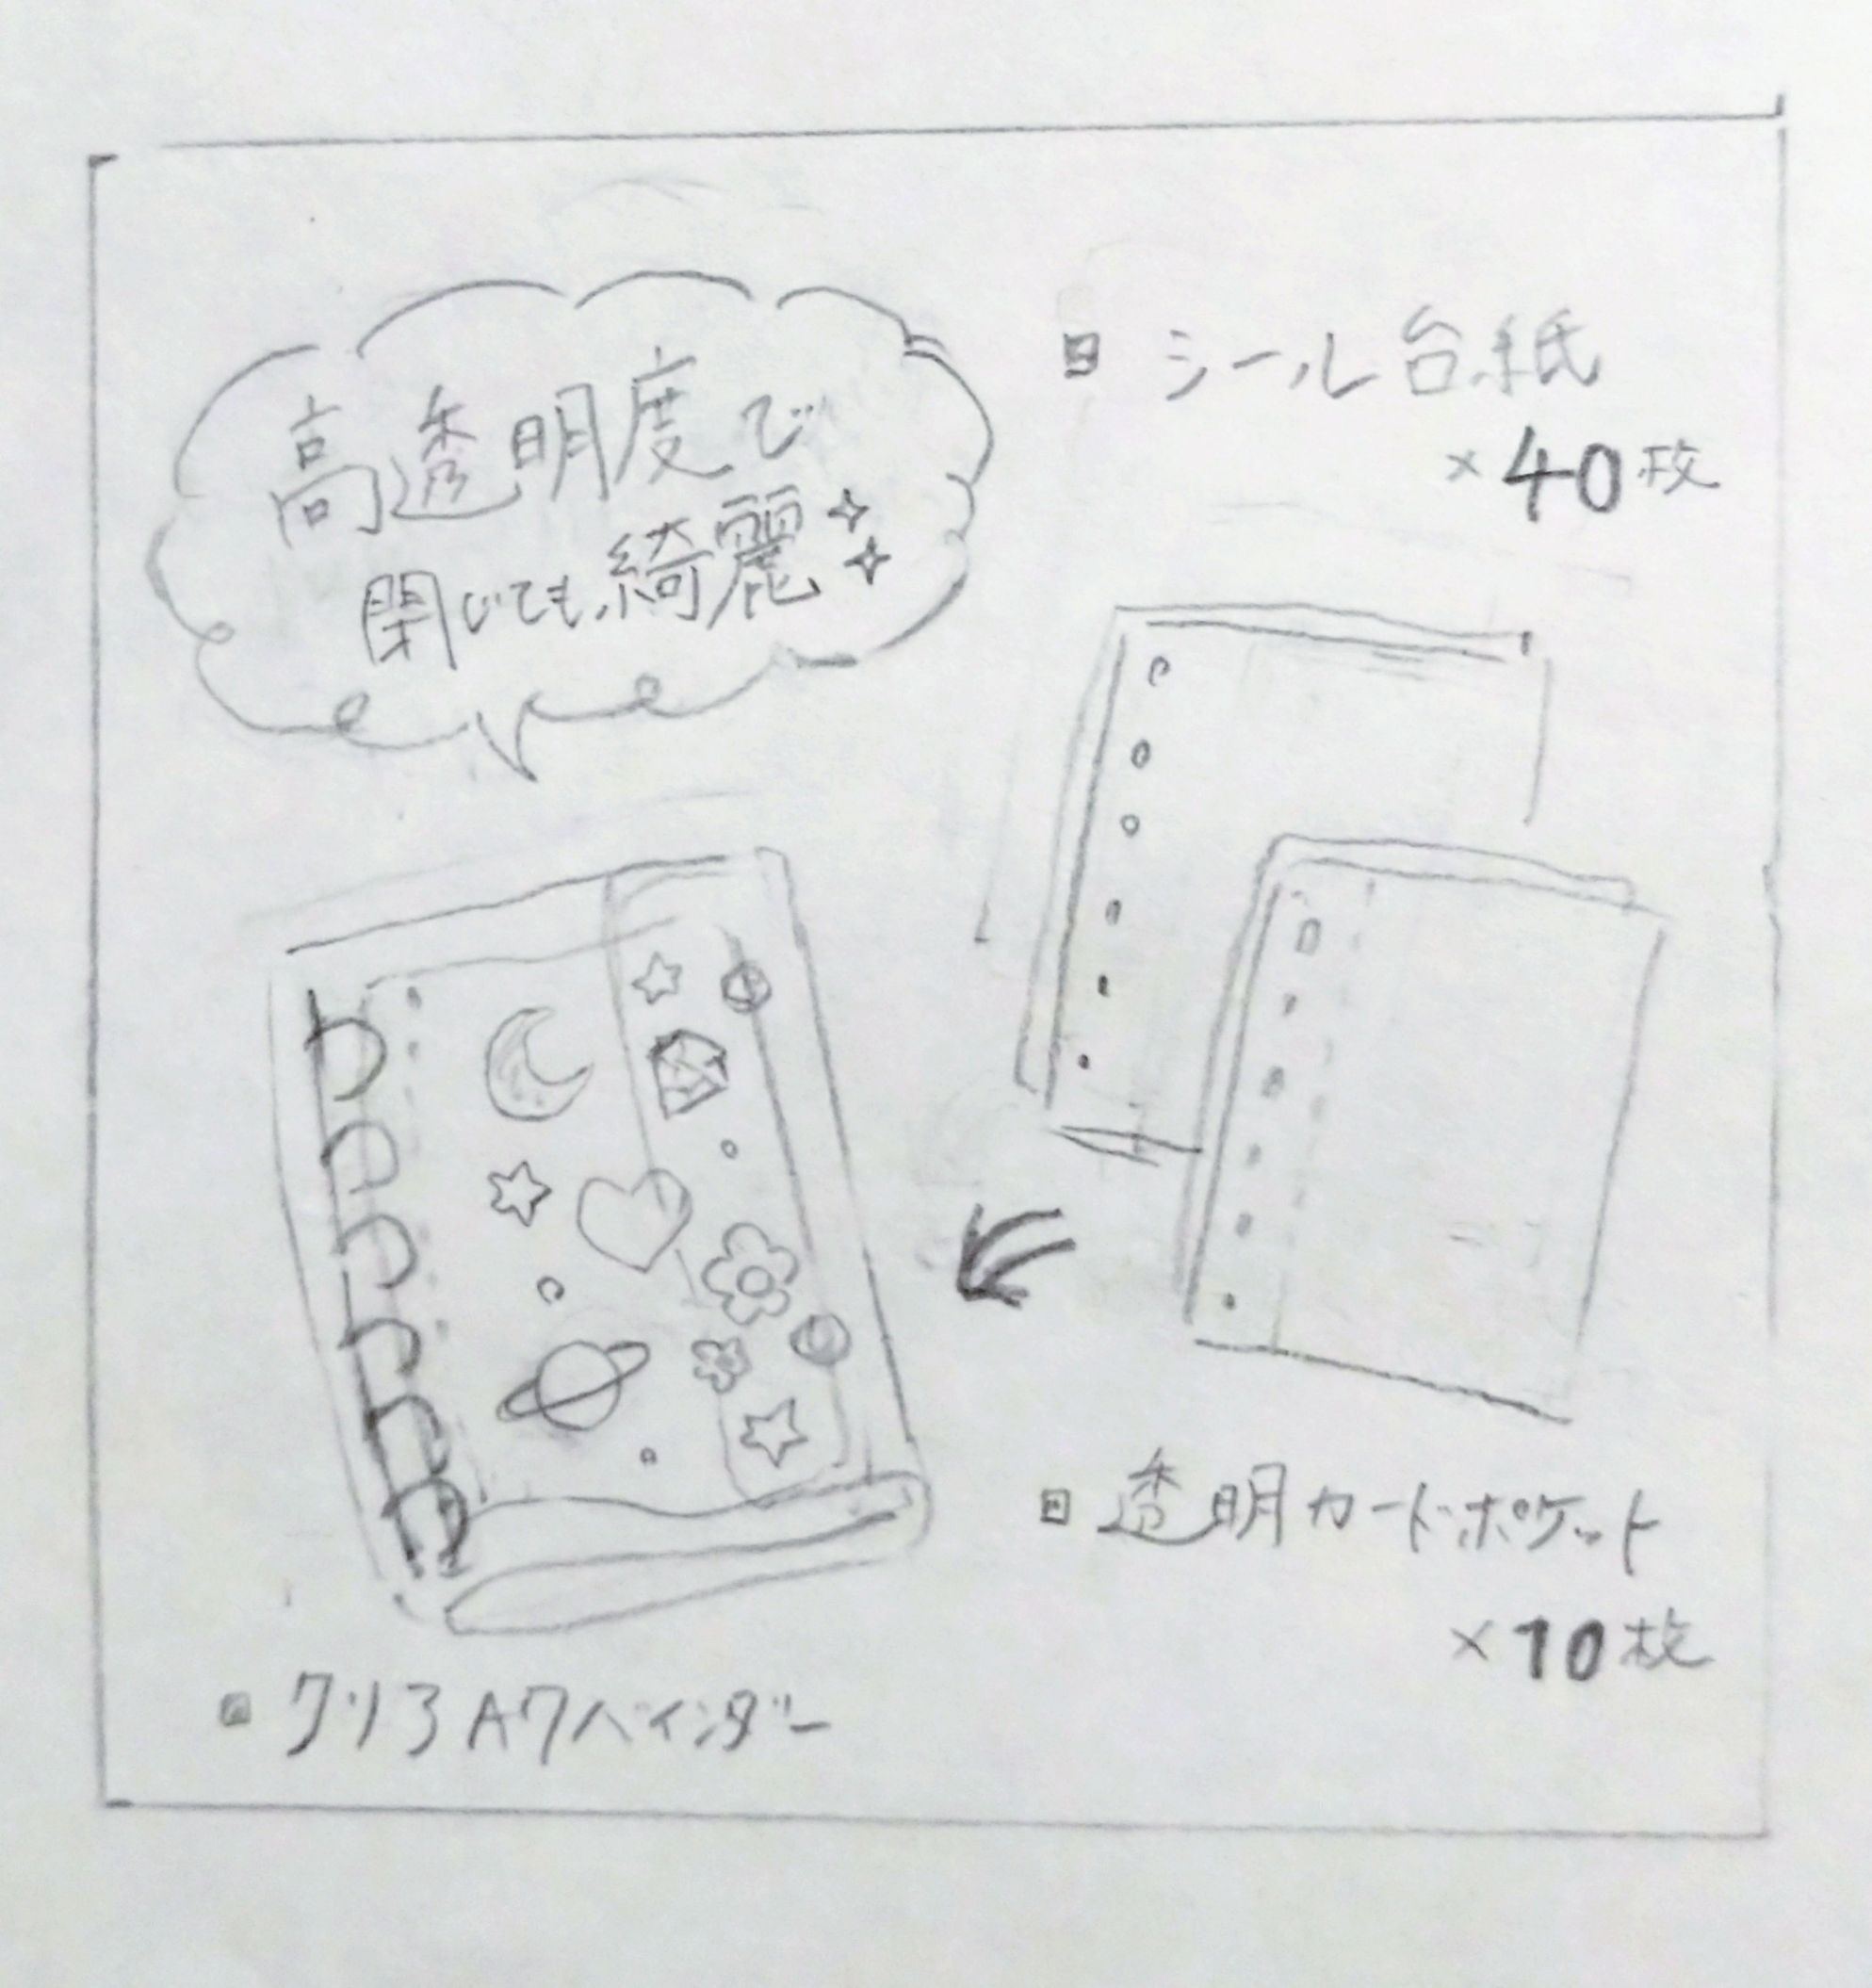 高透明度で
閉じても綺麗
シール台紙
×40枚
透明カードポケット
×10枚
クリアA7バインダー